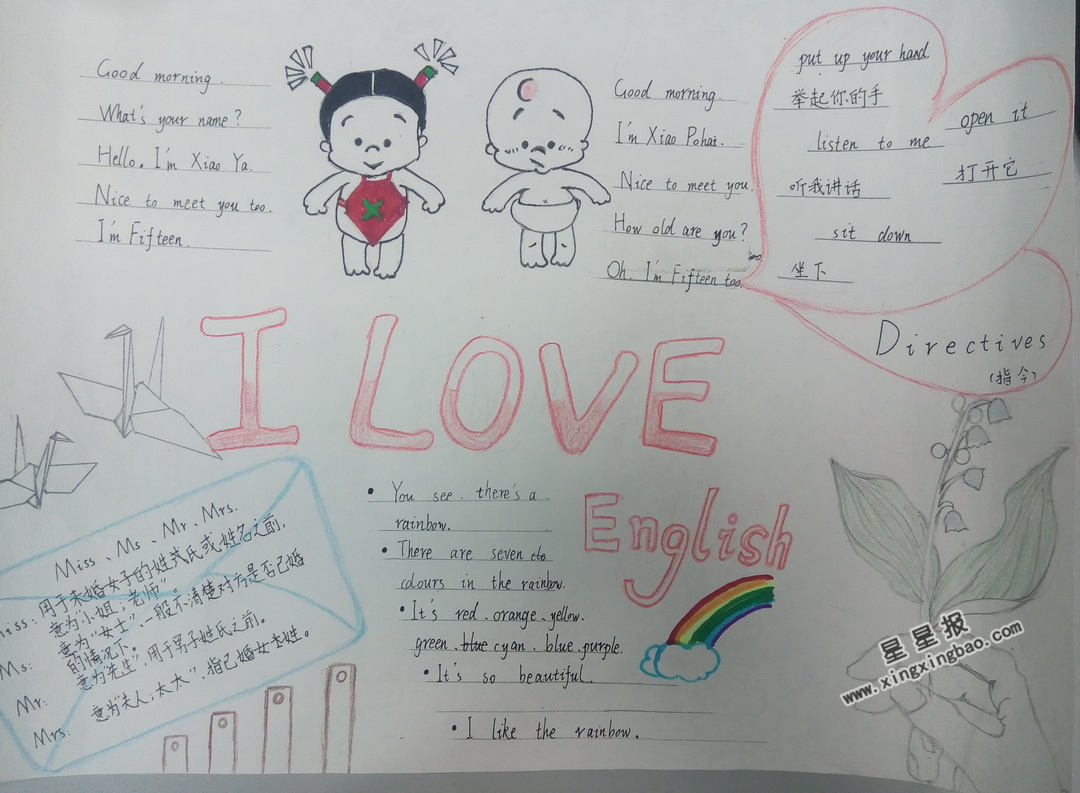 Good morning.
What's your name?
Hello. I'm Xiao Ya.
Nice to meet you too.
I'm Fifteen.
Good morning.
I'm Xiao Pohai.
Nice to meet you.
How old are you?
Oh. I'm Fifteen too.
put up your hand
举起你的手
listen to me
听我讲话
sit down
坐下
open it
打开它
Directives
(指令)
I LOVE
English
Miss、Ms、Mr、Mrs.
Miss: 用于未婚女子的姓式氏或姓名之前,
意为"小姐;老师"。
Ms: 意为"女士",一般不清楚对方是否已婚
的情况下。
Mr: 意为"先生",用于男子姓氏之前。
Mrs: 意为"夫人;太太",指已婚女士姓。
• You see. there's a
rainbow.
• There are seven
colours in the rainbow.
• It's red、orange、yellow、
green、blue cyan、blue、purple.
• It's so beautiful.
• I like the rainbow.
星星报
www.xingxingbao.com